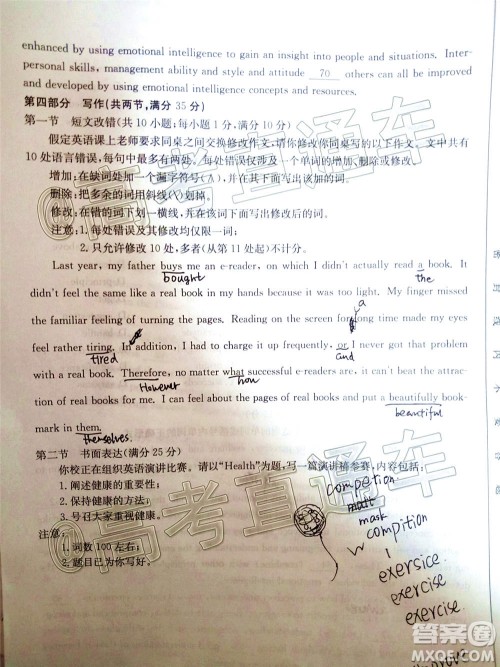 enhanced by using emotional intelligence to gain an insight into people and situations. Inter-
personal skills, management ability and style and attitude 70 others can all be improved
and developed by using emotional intelligence concepts and resources.
第四部分 写作(共两节,满分 35 分)
第一节 短文改错(共 10 小题;每小题 1 分,满分 10 分)
假定英语课上老师要求同桌之间交换修改作文,请你修改你同桌写的以下作文。文中共有
10 处语言错误,每句中最多有两处。每处错误仅涉及一个单词的增加、删除或修改。
增加:在缺词处加一个漏字符号(∧),并在其下面写出该加的词。
删除:把多余的词用斜线(\)划掉。
修改:在错的词下划一横线,并在该词下面写出修改后的词。
注意:1.每处错误及其修改均仅限一词;
2.只允许修改 10 处,多者(从第 11 处起)不计分。
Last year, my father buys me an e-reader, on which I didn't actually read a book. It
bought the
didn't feel the same like a real book in my hands because it was too light. My finger missed
a
the familiar feeling of turning the pages. Reading on the screen for long time made my eyes
feel rather tiring. In addition, I had to charge it up frequently, or I never got that problem
tired and
with a real book. Therefore, no matter what successful e-readers are, it can't beat the attrac-
However how
tion of real books for me. I can feel about the pages of real books and put a beautifully book-
beautiful
mark in them.
themselves.
第二节 书面表达(满分 25 分)
你校正在组织英语演讲比赛。请以"Health"为题,写一篇演讲稿参赛,内容包括:
1.阐述健康的重要性;
2.保持健康的方法;
3.号召大家重视健康。
注意:
1.词数 100 左右;
2.题目已为你写好。
competion
mask
compition
exersice
exercise
exercise.
高考直通车
高考直通车
答案圈
MXQE.COM